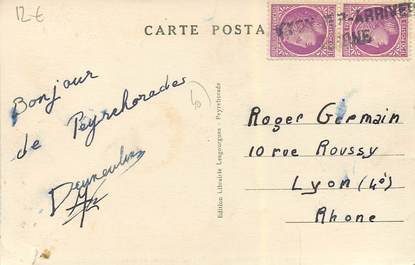 12-€
CARTE POSTA
LYON-ARRIVÉE
RHONE
Bonjour
de Peyrehorade
10
Edition Librairie Lesgourgues - Peyrehorade
Roger Germain
10 rue Roussy
Lyon (4e)
Rhone